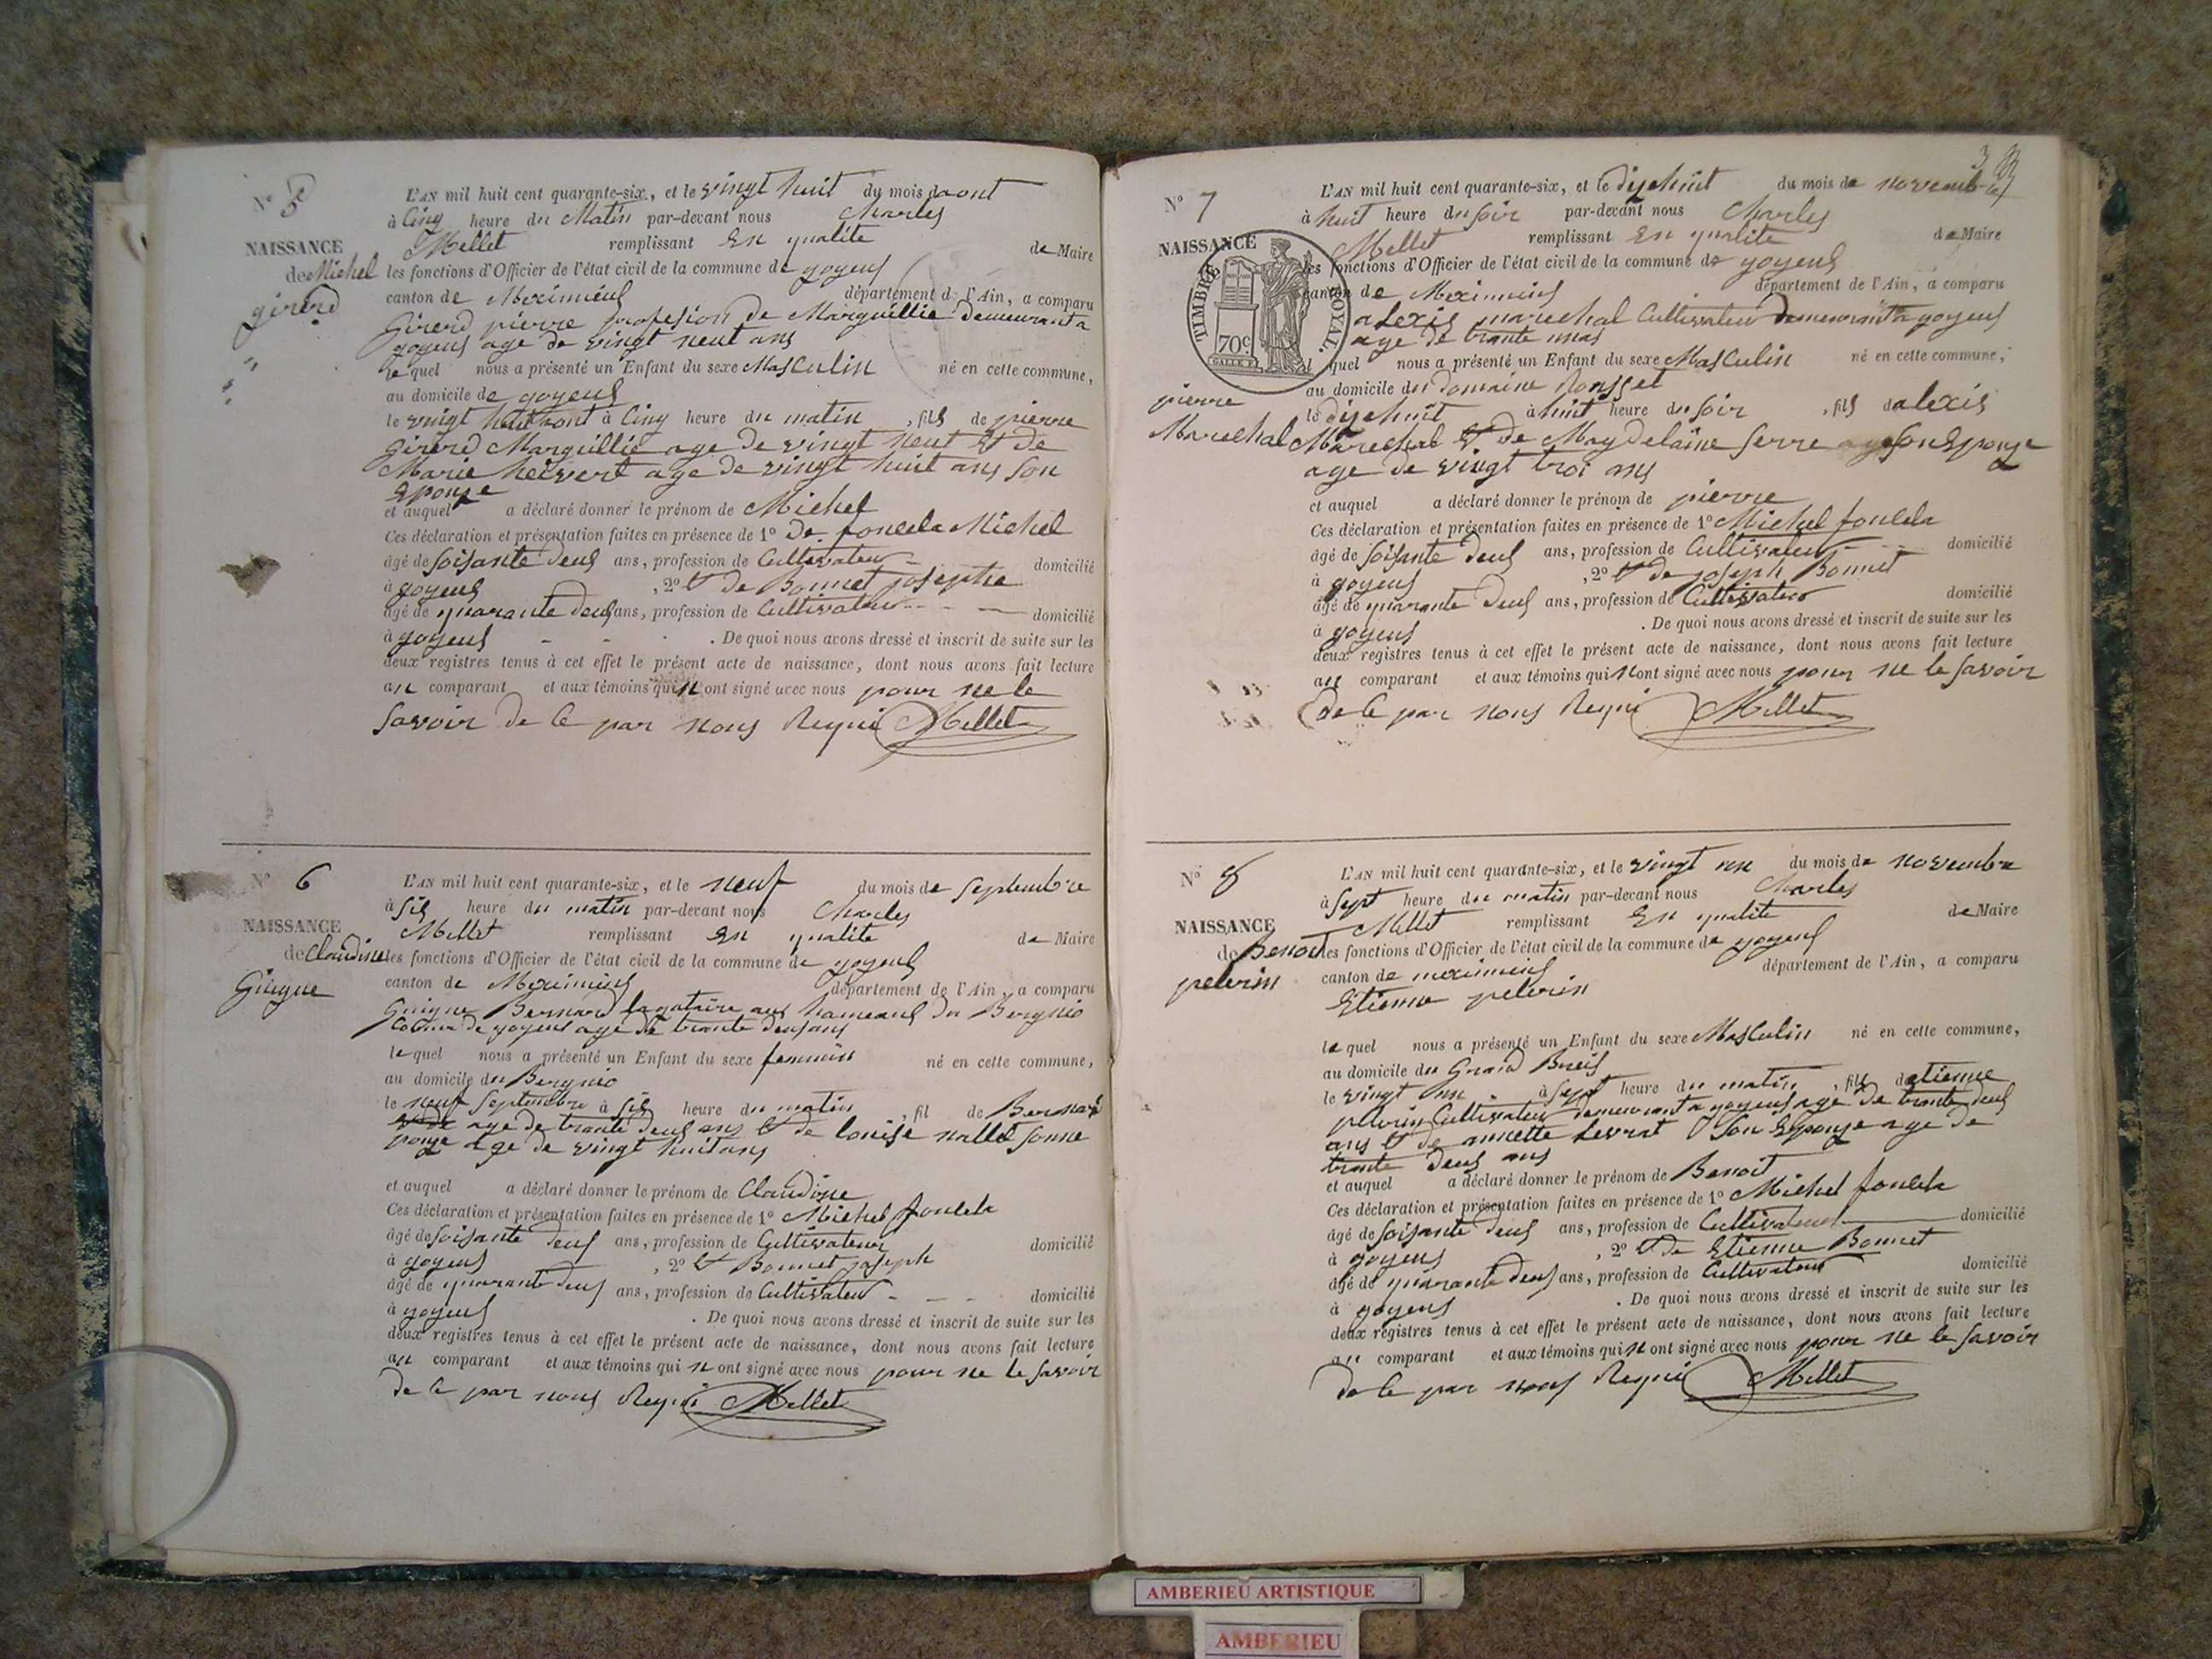 N° 5
L'AN mil huit cent quarante-six, et le vingt huit du mois daout
à Cinq heure du Matin par-devant nous Charles
Mellet remplissant En qualite de Maire
NAISSANCE
de Michel
girerd
les fonctions d'Officier de l'état civil de la commune de joyeus
canton de Meximieus département de l'Ain, a comparu
Girerd pierre profesion de Marguillie demeurant a
joyeus age de vingt neuf ans
le quel nous a présenté un Enfant du sexe Masculin né en cette commune,
au domicile de joyeus
le vingt huit aout à Cinq heure du matin, fils de pierre
Girerd Marguillie age de vingt neuf & de
Marie age de vingt huit ans Son
Epouse
et auquel a déclaré donner le prénom de Michel
Ces déclaration et présentation faites en présence de 1° De Michel
âgé de Soisante deus ans, profession de Cultivateur domicilié
à joyeus, 2° & de Bonnet josephe
âgé de quarante deus ans, profession de Cultivateur domicilié
à joyeus. De quoi nous avons dressé et inscrit de suite sur les
deux registres tenus à cet effet le présent acte de naissance, dont nous avons fait lecture
au comparant et aux témoins qui n ont signé avec nous pour ne le
Savoir de Ce par nous Requi Mellet
N° 6
L'AN mil huit cent quarante-six, et le neuf du mois de Septembre
à Sis heure du matin par-devant nous Charles
Mellet remplissant En qualite de Maire
NAISSANCE
de Claudine
Guigue
les fonctions d'Officier de l'état civil de la commune de joyeus
canton de Meximieus département de l'Ain, a comparu
Guigue Bernard aus hameaus du
de joyeus age de trante deus ans
le quel nous a présenté un Enfant du sexe feminin né en cette commune,
au domicile du
le neuf Septembre à Sis heure du matin, fil de Bernard
age de trante deus ans & de louise nallet Sonne
pouse age de vingt huit ans
et auquel a déclaré donner le prénom de Claudine
Ces déclaration et présentation faites en présence de 1° Michel
âgé de Soisante deus ans, profession de Cultivateur domicilié
à joyeus, 2° & Bonnet joseph
âgé de quarante deus ans, profession de Cultivateur domicilié
à joyeus. De quoi nous avons dressé et inscrit de suite sur les
deux registres tenus à cet effet le présent acte de naissance, dont nous avons fait lecture
au comparant et aux témoins qui n ont signé avec nous pour ne le Savoir
de Ce par nous Requi Mellet
3
N° 7
L'AN mil huit cent quarante-six, et le dijehuit du mois de novembre
à huit heure du Soir par-devant nous Charles
Mellet remplissant En qualite de Maire
NAISSANCE
TIMBRE ROYAL.
70c
pierre
Marechal
les fonctions d'Officier de l'état civil de la commune de joyeus
canton de Meximieus département de l'Ain, a comparu
alexis marechal Cultivateur demeurant a joyeus
age de trante
l quel nous a présenté un Enfant du sexe Masculin né en cette commune,
au domicile du domaine Rousset
le dijehuit à huit heure du Soir, fils dalexis
Marechal & de Magdelaine Serre Son Epouse
age de vingt troi ans
et auquel a déclaré donner le prénom de pierre
Ces déclaration et présentation faites en présence de 1° Michel
âgé de Soisante deus ans, profession de Cultivateur domicilié
à joyeus, 2° & de joseph Bonnet
âgé de quarante deus ans, profession de Cultivateur domicilié
à joyeus. De quoi nous avons dressé et inscrit de suite sur les
deux registres tenus à cet effet le présent acte de naissance, dont nous avons fait lecture
au comparant et aux témoins qui n ont signé avec nous pour ne le Savoir
de Ce par nous Requi Mellet
N° 8
L'AN mil huit cent quarante-six, et le vingt un du mois de novembre
à Sept heure du matin par-devant nous Charles
Mellet remplissant En qualite de Maire
NAISSANCE
de Benoit
pelerin
les fonctions d'Officier de l'état civil de la commune de joyeus
canton de meximieus département de l'Ain, a comparu
Etienne pelerin
le quel nous a présenté un Enfant du sexe Masculin né en cette commune,
au domicile du Grand
le vingt un à Sept heure du matin, fils detienne
pelerin Cultivateur demeurant a joyeus age de trante deus
ans & de annette Levrat Son Epouse age de
trante deus ans
et auquel a déclaré donner le prénom de Benoit
Ces déclaration et présentation faites en présence de 1° Michel
âgé de Soisante deus ans, profession de Cultivateur domicilié
à joyeus, 2° & de Etienne Bonnet
âgé de quarante deus ans, profession de Cultivateur domicilié
à joyeus. De quoi nous avons dressé et inscrit de suite sur les
deux registres tenus à cet effet le présent acte de naissance, dont nous avons fait lecture
au comparant et aux témoins qui n ont signé avec nous pour ne le Savoir
de Ce par nous Requi Mellet
AMBERIEU ARTISTIQUE
AMBERIEU